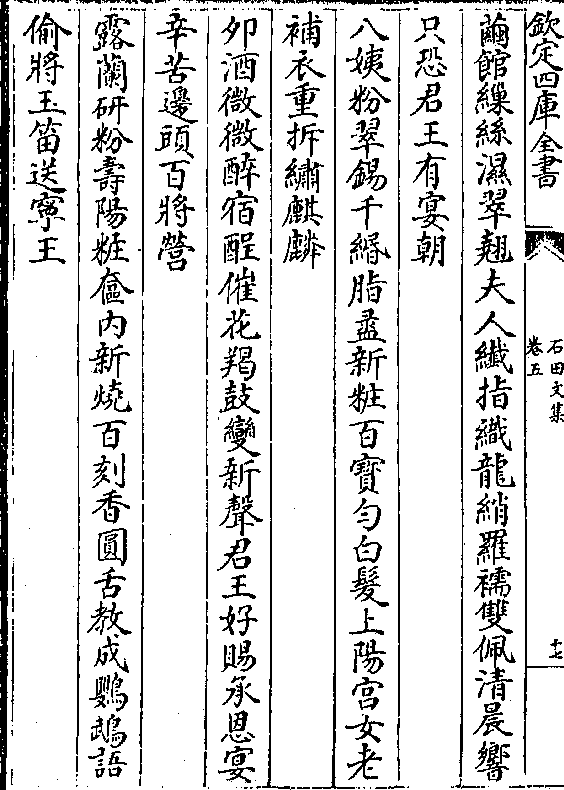 欽定四庫全書
石田文集
卷五
十七
繭館繅絲濕翠翹夫人纎指織龍綃羅襦雙佩清晨響
只恐君王有宴朝
八姨粉翠錫千緡脂盝新粧百寳勻白髮上陽宫女老
補衣重拆繡麒麟
夘酒微微醉宿酲催花羯鼓變新聲君王好賜承恩宴
辛苦邊頭百將營
露蘭研粉壽陽粧奩内新燒百刻香圓舌教成鸚鵡語
偷將玉笛送寜王